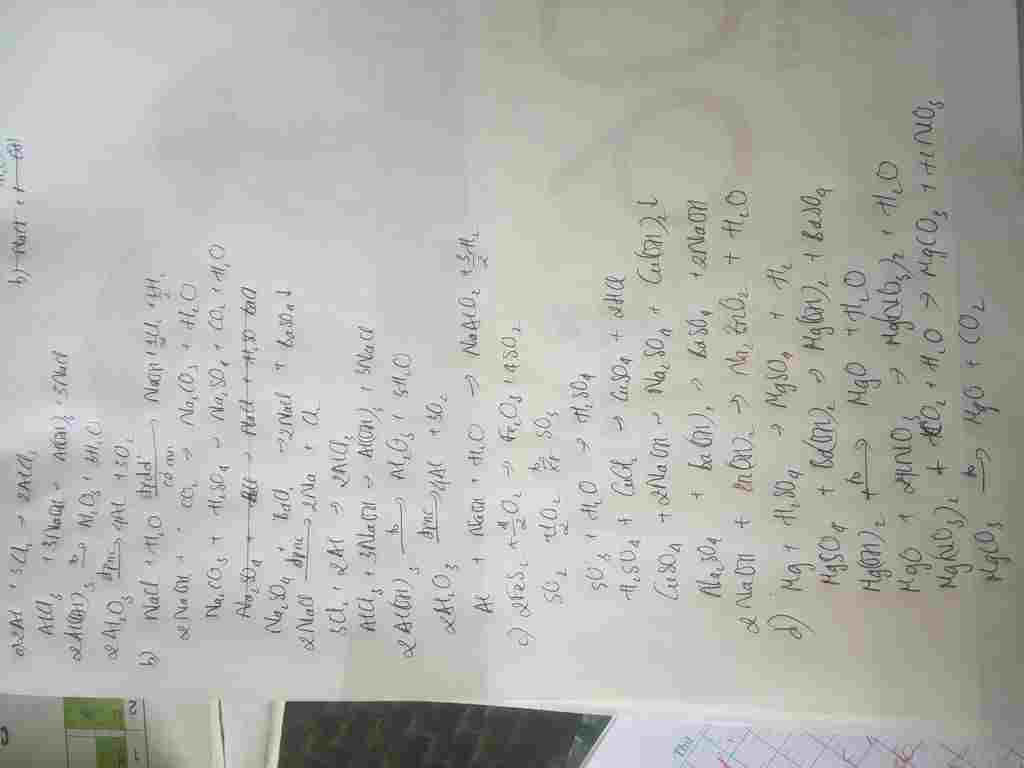 a) 2Al + 3Cl2 → 2AlCl3
AlCl3 + 3NaOH → Al(OH)3 + 3NaCl
2Al(OH)3 to→ Al2O3 + 3H2O
2Al2O3 đpnc→ 4Al + 3O2
b) NaCl + H2O → NaOH + 1/2 Cl2 + 1/2 H2
2NaOH + CO2 → Na2CO3 + H2O
Na2CO3 + H2SO4 → Na2SO4 + CO2 + H2O
Na2SO4 + BaCl2 → 2NaCl + BaSO4 ↓
2NaCl đpnc→ 2Na + Cl2
3Cl2 + 2Al → 2AlCl3
AlCl3 + 3NaOH → Al(OH)3 + 3NaCl
2Al(OH)3 to→ Al2O3 + 3H2O
2Al2O3 đpnc→ 4Al + 3O2
Al + NaOH + H2O → NaAlO2 + 3/2 H2
c) 2FeS2 + 11/2 O2 → Fe2O3 + 4SO2
SO2 + 1/2 O2 to→ SO3
SO3 + H2O → H2SO4
H2SO4 + CuCl2 → CuSO4 + 2HCl
CuSO4 + 2NaOH → Na2SO4 + Cu(OH)2 ↓
Na2SO4 + Ba(OH)2 → BaSO4 + 2NaOH
2NaOH + ZnO → Na2ZnO2 + H2O
d) Mg + H2SO4 → MgSO4 + H2
MgSO4 + Ba(OH)2 → Mg(OH)2 + BaSO4
Mg(OH)2 to→ MgO + H2O
MgO + 2HNO3 → Mg(NO3)2 + H2O
Mg(NO3)2 + CO2 + H2O → MgCO3 + HNO3
MgCO3 to→ MgO + CO2
b) NaCl +